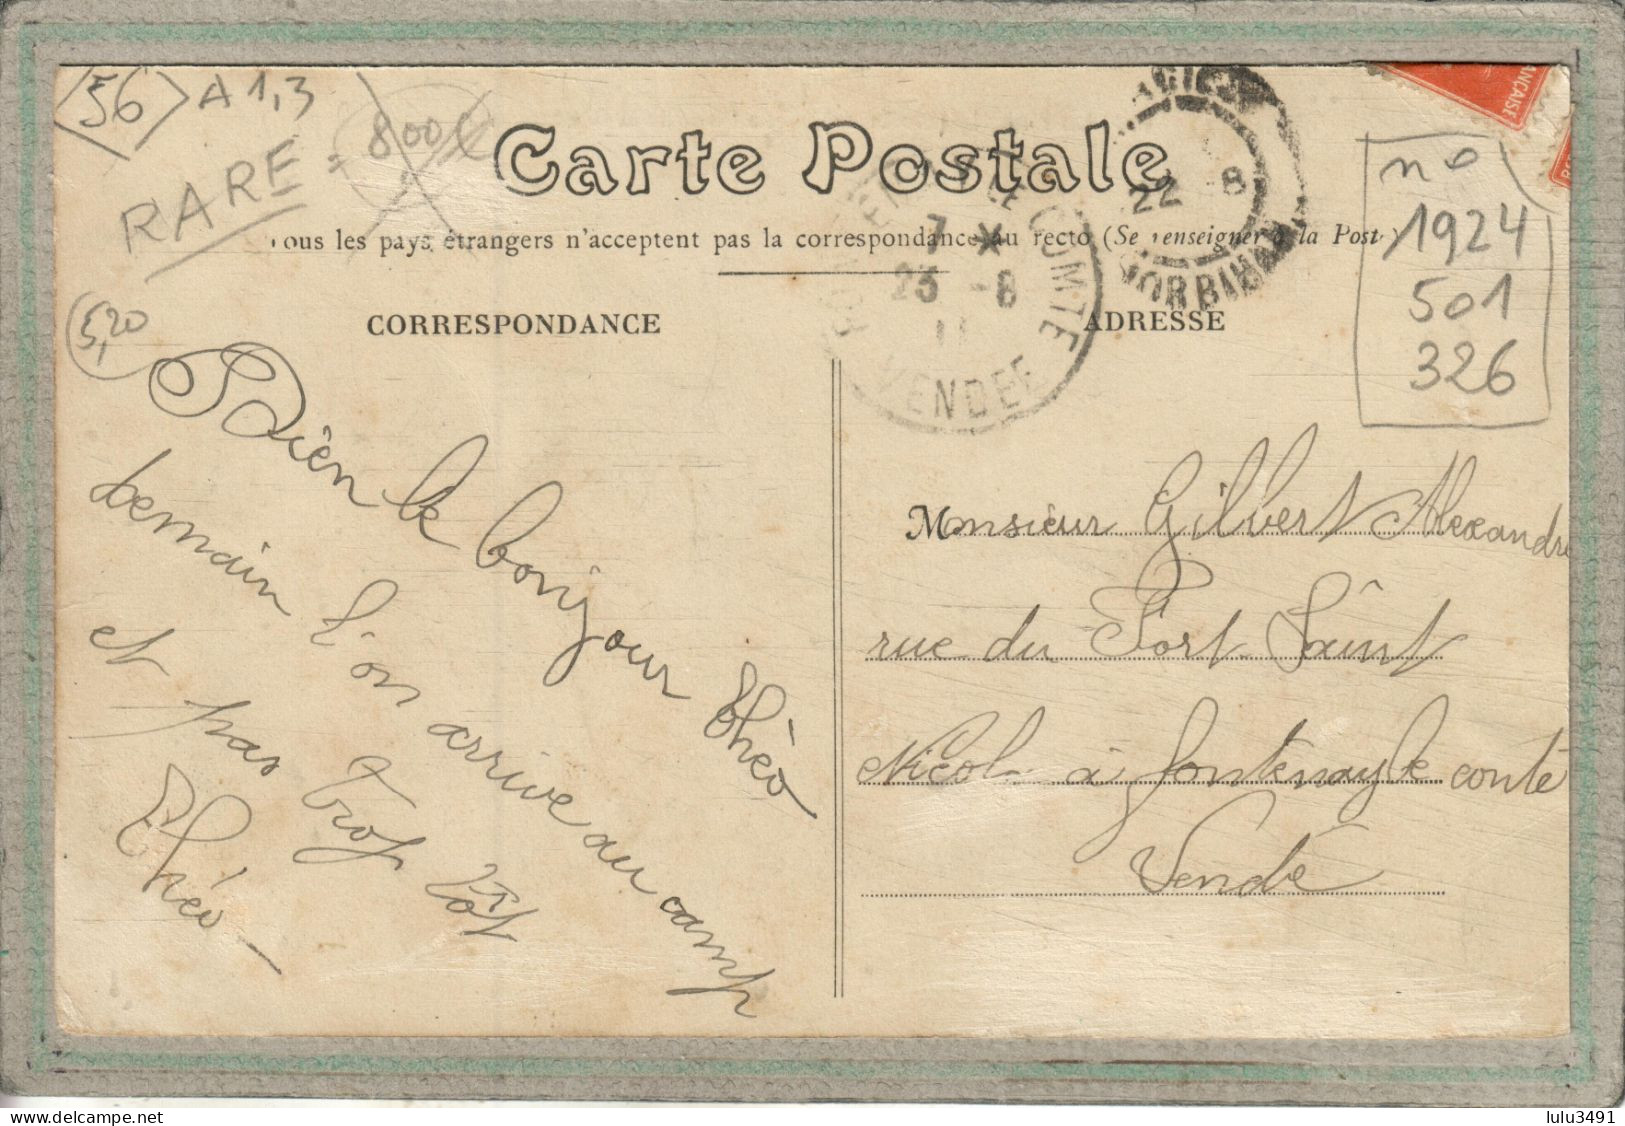 56 A 1,3
RARE = 800
Carte Postale
Tous les pays étrangers n'acceptent pas la correspondance au recto (Se renseigner à la Poste)
22 8
MORBIHAN
7 *
23 - 8
11
LE COMTE
VENDEE
FRANÇAISE
n°
1924
501
326
5,20
CORRESPONDANCE
ADRESSE
Bien le bonjour Théo
demain l'on arrive au camp
et pas trop tôt
Théo
Monsieur Gilbert Alexandre
rue du Port Saint
Nicol à fontenay le conte
Vendé
delcampe.net
lulu3491